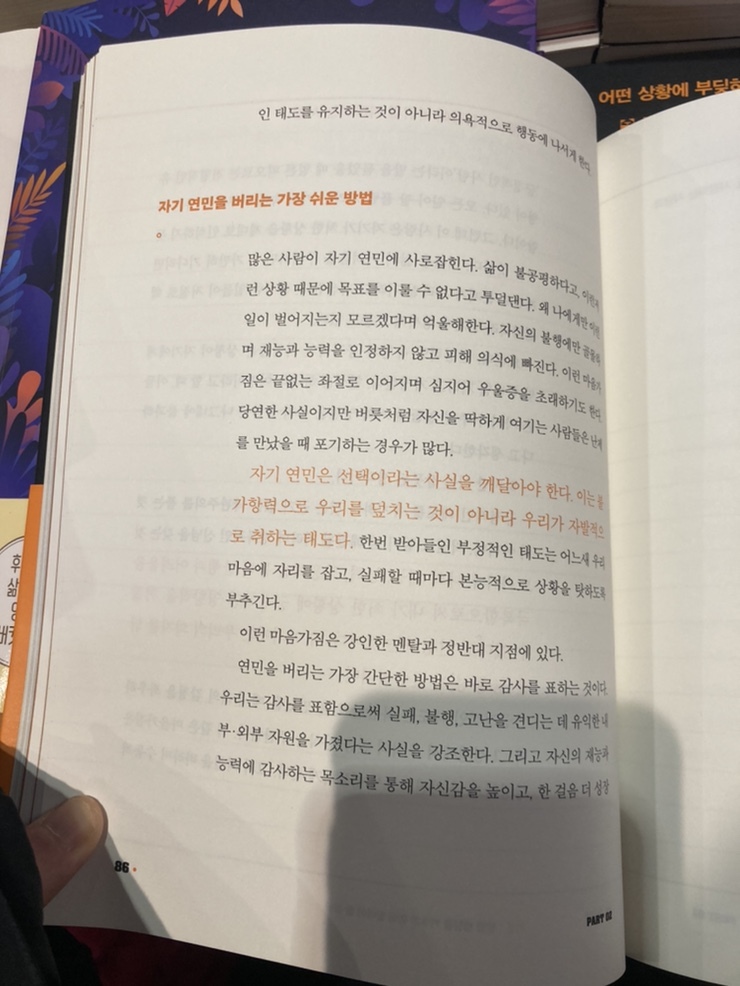 인 태도를 유지하는 것이 아니라 의욕적으로 행동에 나서게 한다.
자기 연민을 버리는 가장 쉬운 방법
많은 사람이 자기 연민에 사로잡힌다. 삶이 불공평하다고, 이런저
런 상황 때문에 목표를 이룰 수 없다고 투덜댄다. 왜 나에게만 이런
일이 벌어지는지 모르겠다며 억울해한다. 자신의 불행에만 골몰하
며 재능과 능력을 인정하지 않고 피해 의식에 빠진다. 이런 마음가
짐은 끝없는 좌절로 이어지며 심지어 우울증을 초래하기도 한다.
당연한 사실이지만 버릇처럼 자신을 딱하게 여기는 사람들은 난제
를 만났을 때 포기하는 경우가 많다.
자기 연민은 선택이라는 사실을 깨달아야 한다. 이는 불
가항력으로 우리를 덮치는 것이 아니라 우리가 자발적으
로 취하는 태도다. 한번 받아들인 부정적인 태도는 어느새 우리
마음에 자리를 잡고, 실패할 때마다 본능적으로 상황을 탓하도록
부추긴다.
이런 마음가짐은 강인한 멘탈과 정반대 지점에 있다.
연민을 버리는 가장 간단한 방법은 바로 감사를 표하는 것이다.
우리는 감사를 표함으로써 실패, 불행, 고난을 견디는 데 유익한 내
부·외부 자원을 가졌다는 사실을 강조한다. 그리고 자신의 재능과
능력에 감사하는 목소리를 통해 자신감을 높이고, 한 걸음 더 성장
86
PART 02
어떤 상황에 부딪히
후
삶